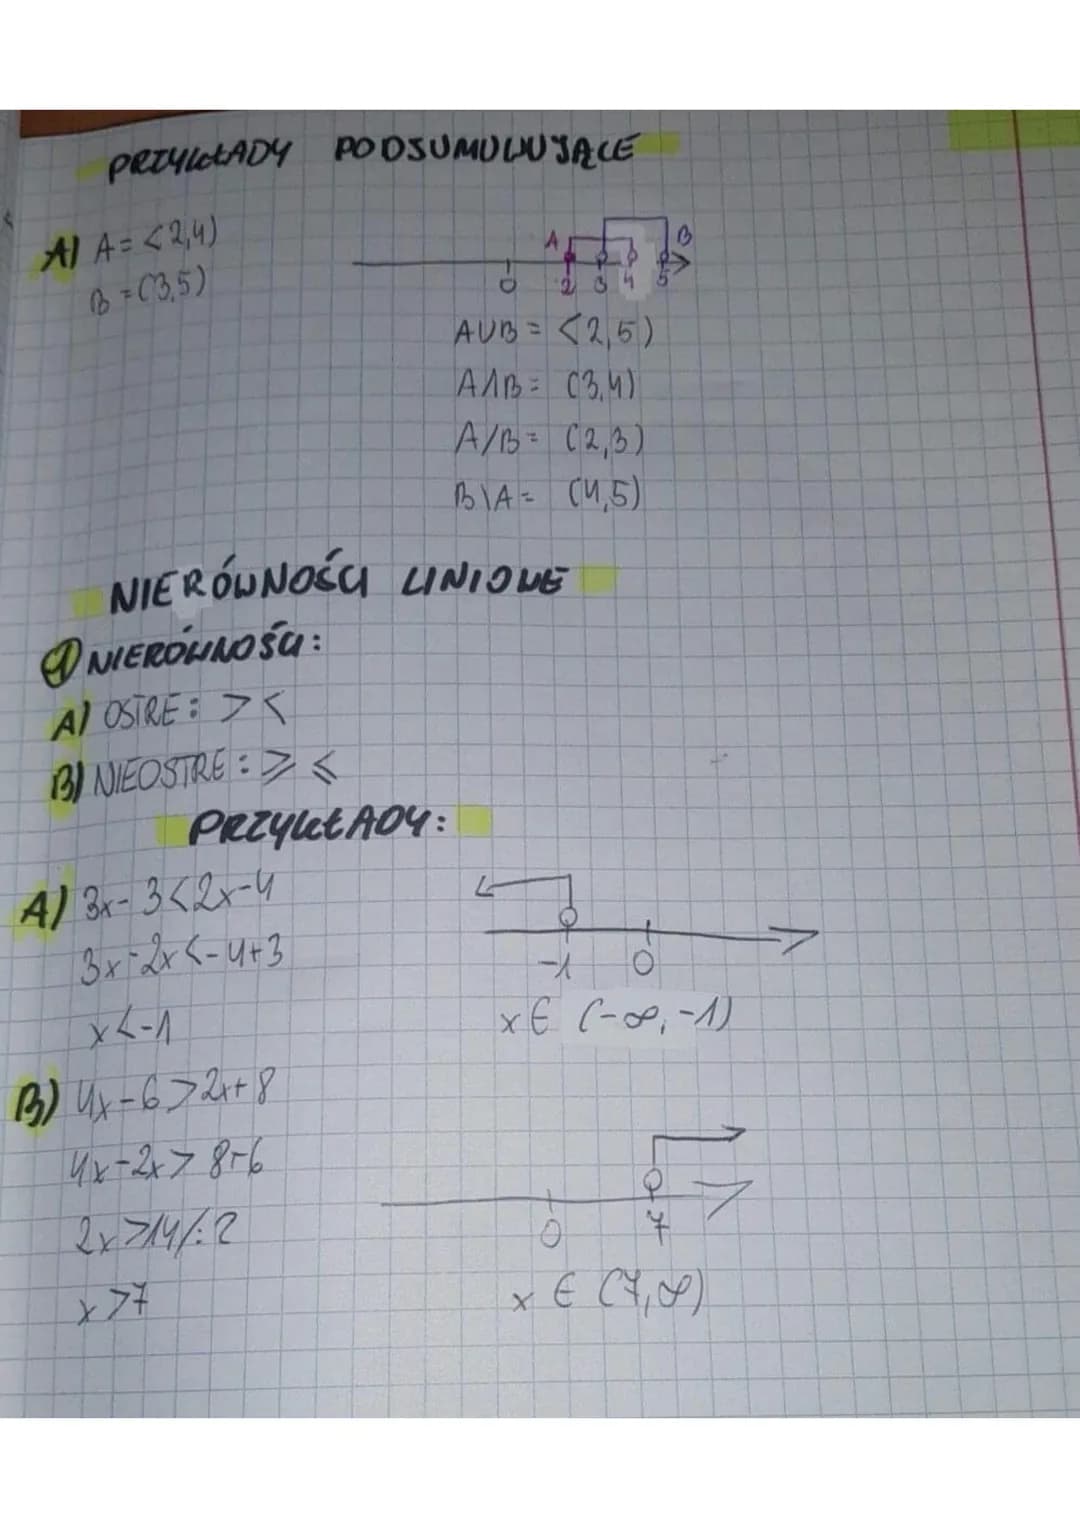 PRZYKŁADY PODSUMOWUJĄCE
A) A = <2,4)
B = (3,5)
A B
0 2 3 4 5
AUB = <2,5)
A∩B = (3,4)
A/B = (2,3)
B\A = (4,5)
NIERÓWNOŚCI LINIOWE
NIERÓWNOŚCI:
A) OSTRE: > <
B) NIEOSTRE: ⩾ ⩽
PRZYKŁADY:
A) 3x-3<2x-4
3x-2x<-4+3
x<-1
-1 0
x∈ (-∞,-1)
B) 4x-6>2x+8
4x-2x> 8+6
2x>14/:2
x>7
0 7
x ∈ (7,∞)